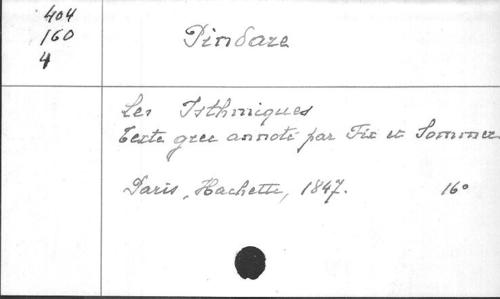 404
160
4
Pindare
Les Isthmiques
Texte grec annoté par Fix et Sommer
Paris, Hachette, 1847. 16°